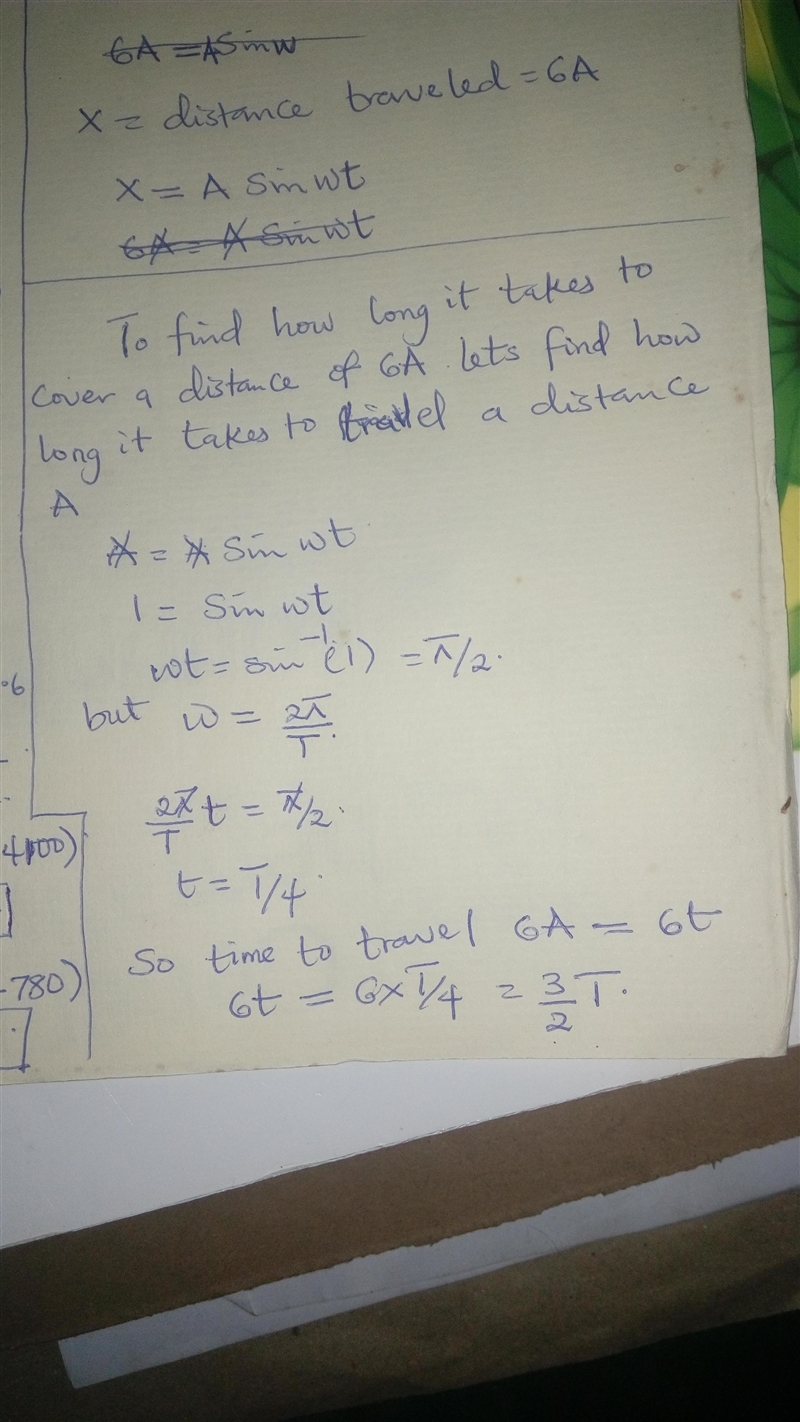 6A = A Sin w
X = distance traveled = 6A
X = A Sin wt
6A = A Sin wt
To find how long it takes to
cover a distance of 6A lets find how
long it takes to travel a distance
A
A = A Sin wt
1 = Sin wt
wt = sin⁻¹(1) = π/2.
.06
but w = 2π/T.
2π/T t = π/2.
4100)
t = T/4.
So time to travel 6A = 6t
-780)
6t = 6 x T/4 = 3/2 T.